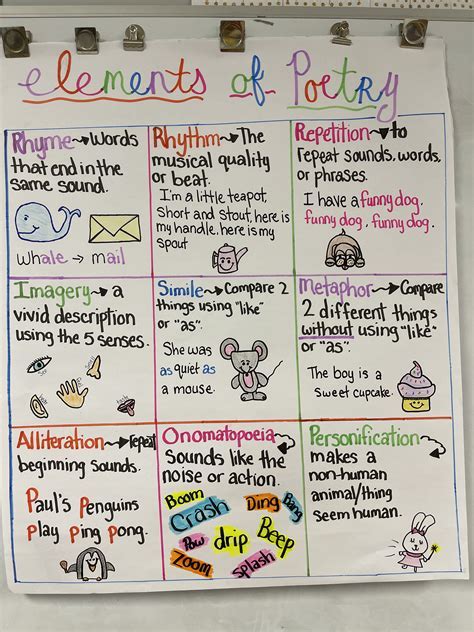 elements of Poetry
Rhyme → Words
that end in the
same sound.
whale → mail
Rhythm → The
musical quality
or beat.
I'm a little teapot,
Short and Stout, here is
my handle, here is my
spout
Repetition → to
repeat sounds, words,
or phrases.
I have a funny dog,
funny dog, funny dog.
Imagery → a
vivid description
using the 5 senses.
Simile → Compare 2
things using "like"
or "as".
She was
as quiet as
a mouse.
Metaphor → Compare
2 different things
without using "like"
or "as".
The boy is a
sweet cupcake.
Alliteration → repeat
beginning sounds.
Paul's Penguins
Play Ping Pong.
Onomatopoeia
Sounds like the
noise or action.
Boom
Crash
Ding
Bang
Pow
drip
Beep
Zoom
Splash
Personification
makes a
non-human
animal/thing
seem human.